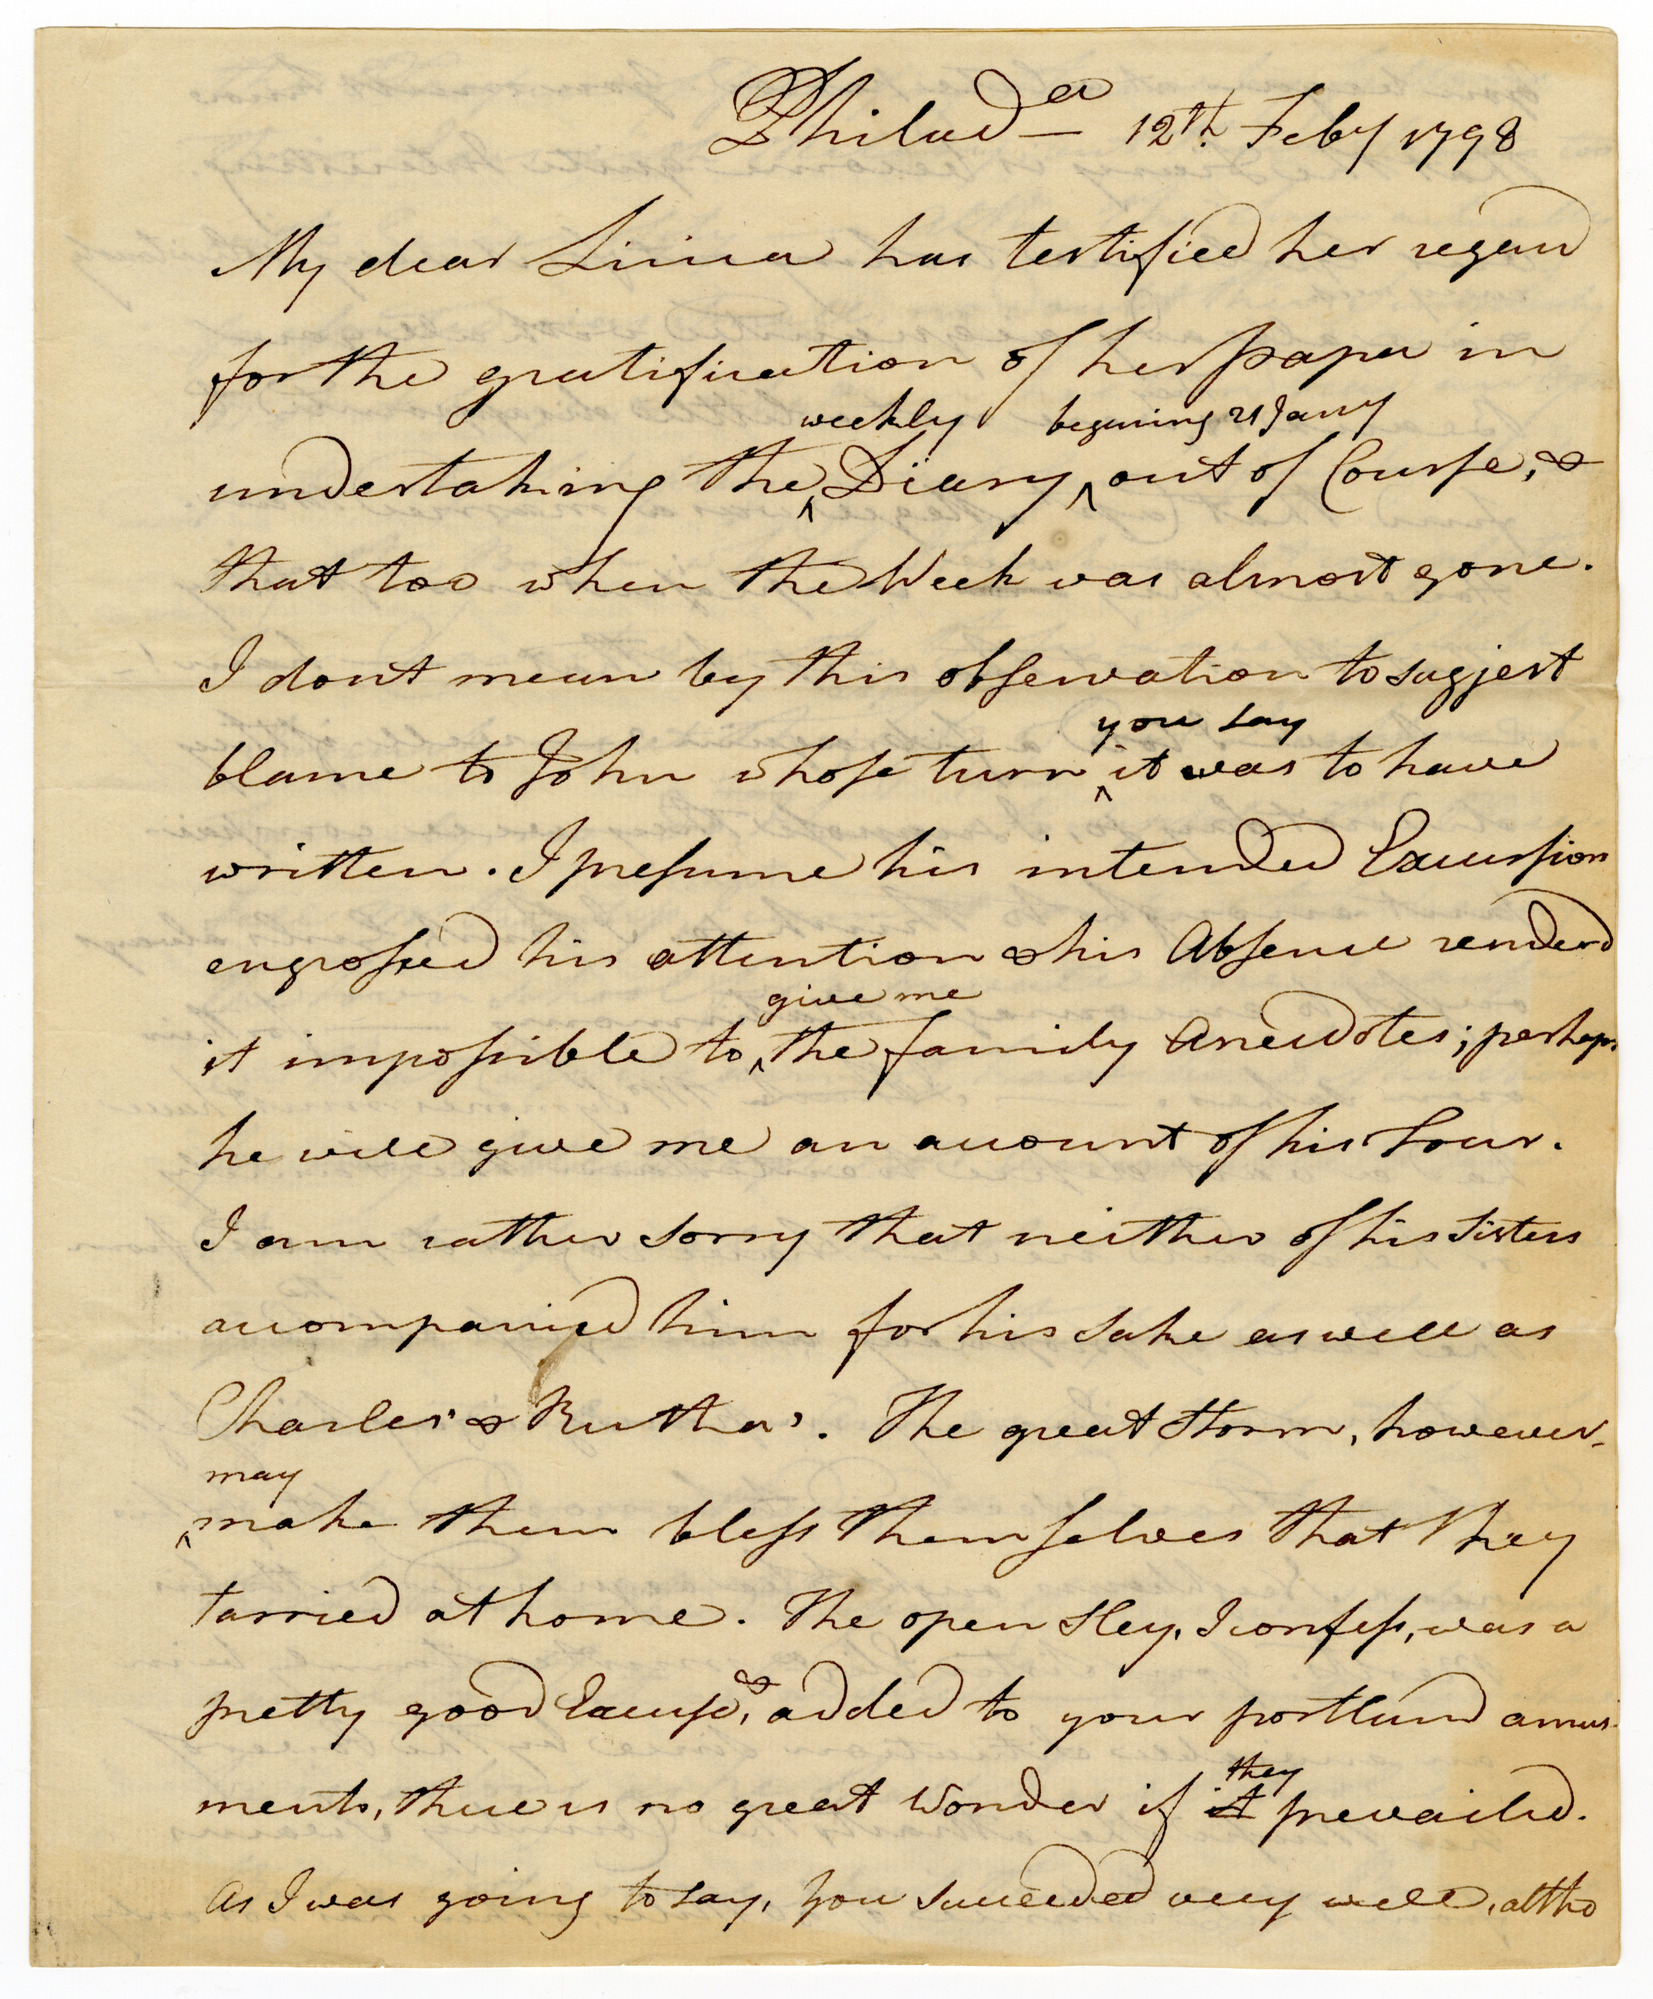 Philad^a 12th. Feby 1798
My dear Linia has testified her regard
for the gratification of her papa in
weekly begining 21 Janry
undertaking the Diary out of Course, &
that too when the Week was almost gone.
I dont mean by this observation to suggest
you say
blame to John whose turn it was to have
written. I presume his intended Excursion
engrossed his attention & his Absence renderd
give me
it impossible to the family Anecdotes; perhaps
he will give me an account of his Tour.
I am rather sorry that neither of his Sisters
accompanied him for his sake as well as
Charles' & Rutha's. The great storm, however,
may
make them bless themselves that they
tarried at home. The open Sley, I confess, was a
pretty good Excuse, & added to your portland amus-
they
ments, there is no great Wonder if it prevailed.
As I was going to say, you succeeded very well, altho